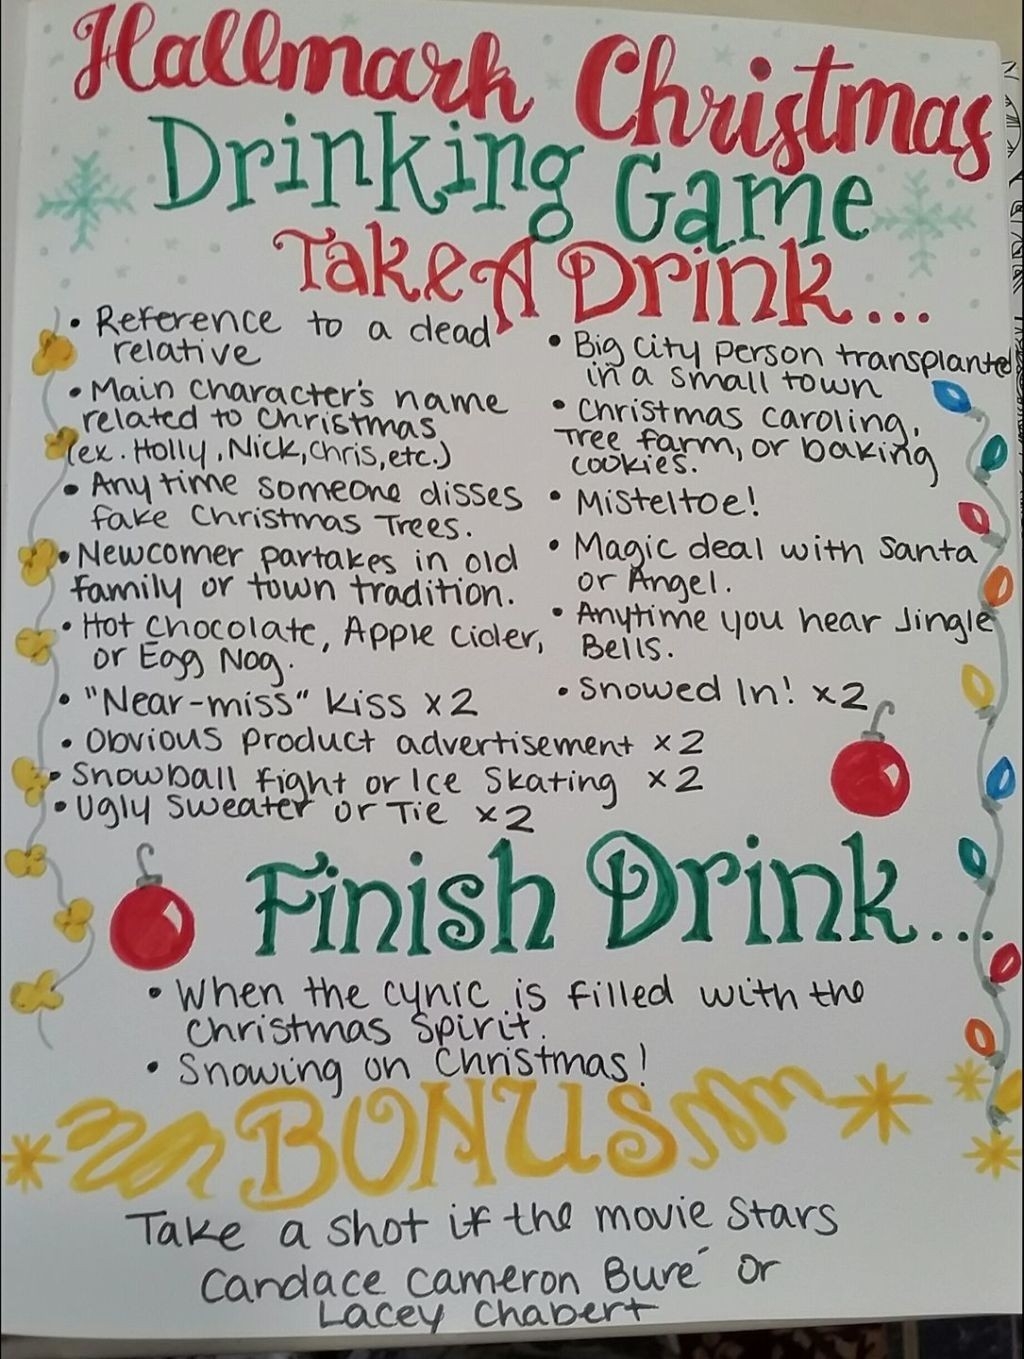 Hallmark Christmas
Drinking Game
Take A Drink...
• Reference to a dead
relative
• Main character's name
related to Christmas
(ex. Holly, Nick, Chris, etc.)
• Any time someone disses
fake Christmas Trees.
• Newcomer partakes in old
family or town tradition.
• Hot chocolate, Apple Cider,
or Egg Nog.
• "Near-miss" kiss x2
• Obvious product advertisement x2
• Snowball fight or Ice Skating x2
• Ugly Sweater or Tie x2
• Big city person transplanted
in a small town
• Christmas caroling,
Tree farm, or baking
cookies.
• Misteltoe!
• Magic deal with Santa
or Angel.
• Anytime you hear Jingle
Bells.
• Snowed In! x2
Finish Drink...
• When the cynic is filled with the
Christmas Spirit.
• Snowing on Christmas!
BONUS
Take a shot if the movie stars
Candace Cameron Buré or
Lacey Chabert